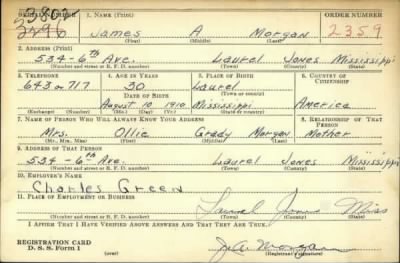 SERIAL NUMBER 1. NAME (Print) ORDER NUMBER
2802
James A Morgan 2359
(First) (Middle) (Last)
2. ADDRESS (Print)
534-6th Ave. Laurel Jones Mississippi
(Number and street or R. F. D. number) (Town) (County) (State)
3. TELEPHONE 4. AGE IN YEARS 5. PLACE OF BIRTH 6. COUNTRY OF CITIZENSHIP
643 or 717 30 Laurel
DATE OF BIRTH (Town or county)
August 10, 1910 Mississippi America
(Exchange) (Number) (Mo.) (Day) (Yr.) (State or country)
7. NAME OF PERSON WHO WILL ALWAYS KNOW YOUR ADDRESS 8. RELATIONSHIP OF THAT PERSON
Mrs. Ollie Grady Morgan Mother
(Mr., Mrs., Miss) (First) (Middle) (Last)
9. ADDRESS OF THAT PERSON
534-6th Ave. Laurel Jones Mississippi
(Number and street or R. F. D. number) (Town) (County) (State)
10. EMPLOYER'S NAME
Charles Green
11. PLACE OF EMPLOYMENT OR BUSINESS
Laurel Jones Miss
(Number and street or R. F. D. number) (Town) (County) (State)
I AFFIRM THAT I HAVE VERIFIED ABOVE ANSWERS AND THAT THEY ARE TRUE.
REGISTRATION CARD
D. S. S. Form 1
J. A. Morgan
(Registrant's signature)